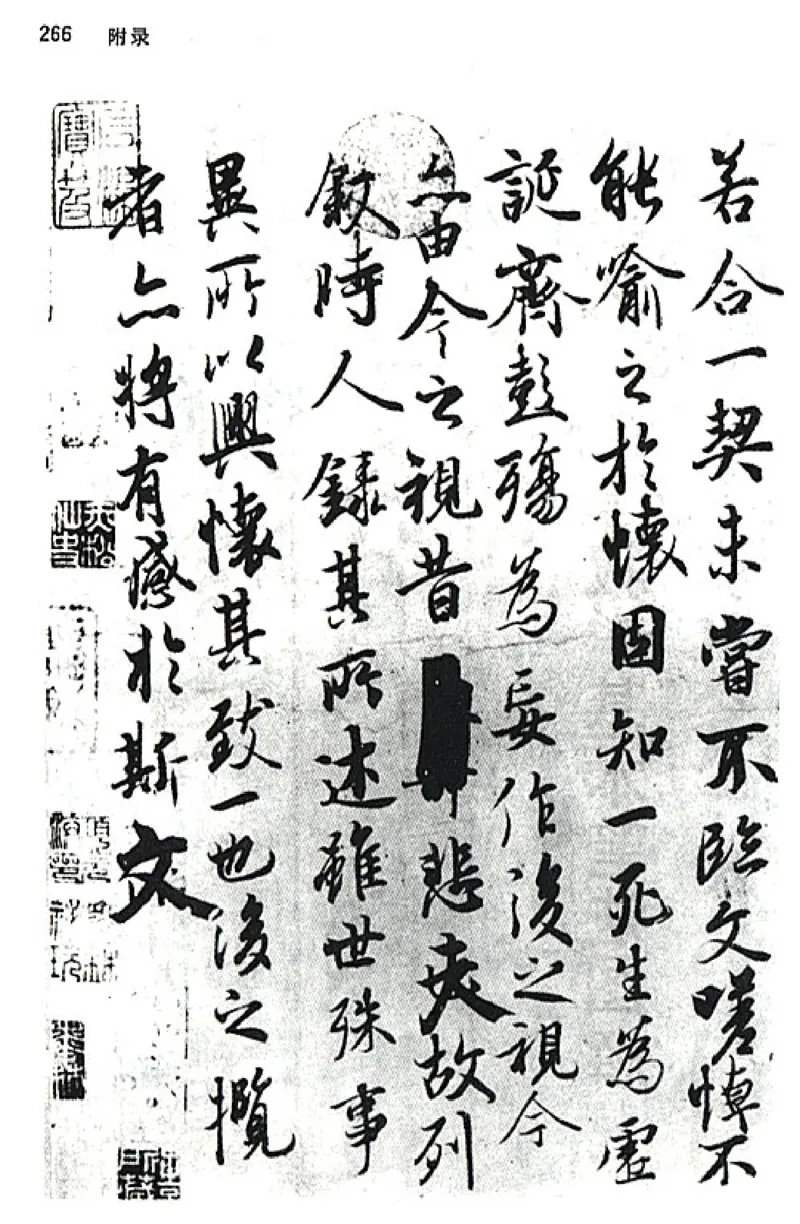 266 附录
若合一契未嘗不臨文嗟悼不
能喻之於懷固知一死生為虛
誕齊彭殤為妄作後之視今
亦由今之視昔悲夫故列
敘時人錄其所述雖世殊事
異所以興懷其致一也後之攬
者亦將有感於斯文